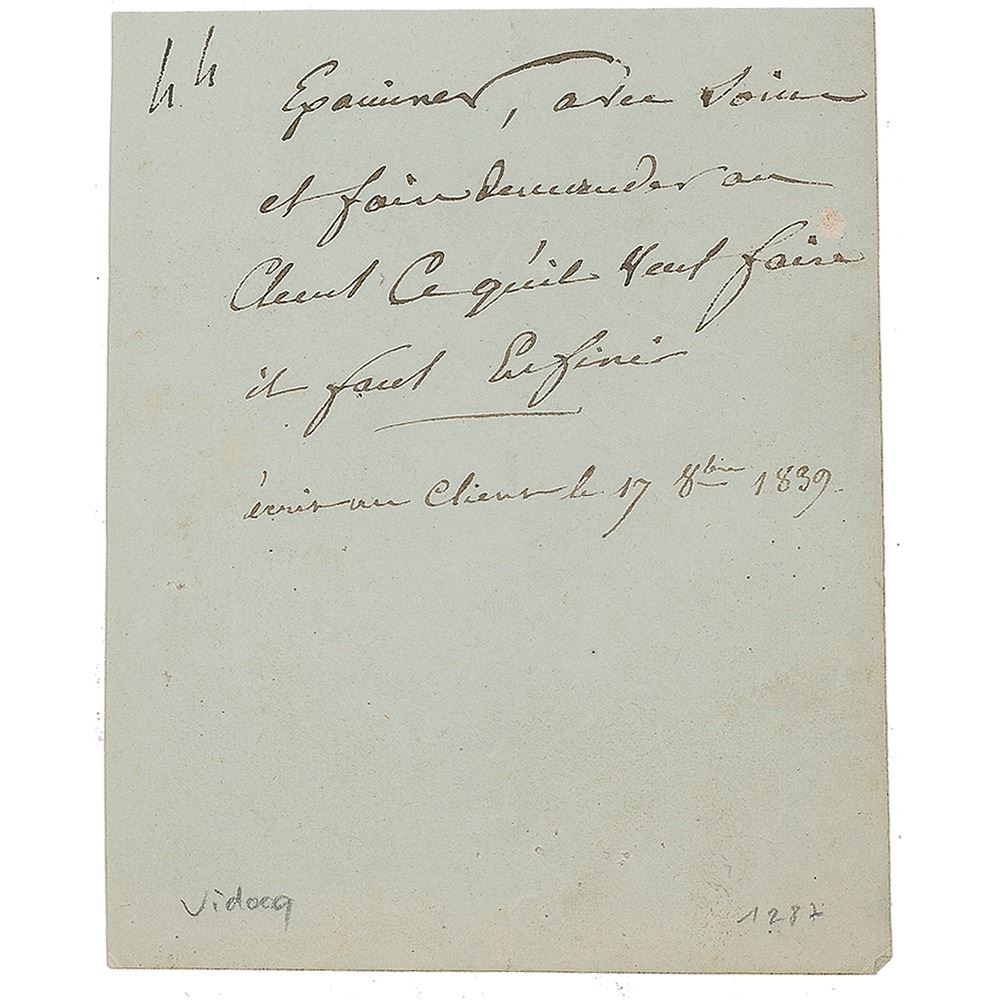 44
Examiner, avec soin
et faire demander au
Client Ce qu'il Veut faire
il faut En finir
écrit au Client le 17 8bre 1839
Vidocq
1287